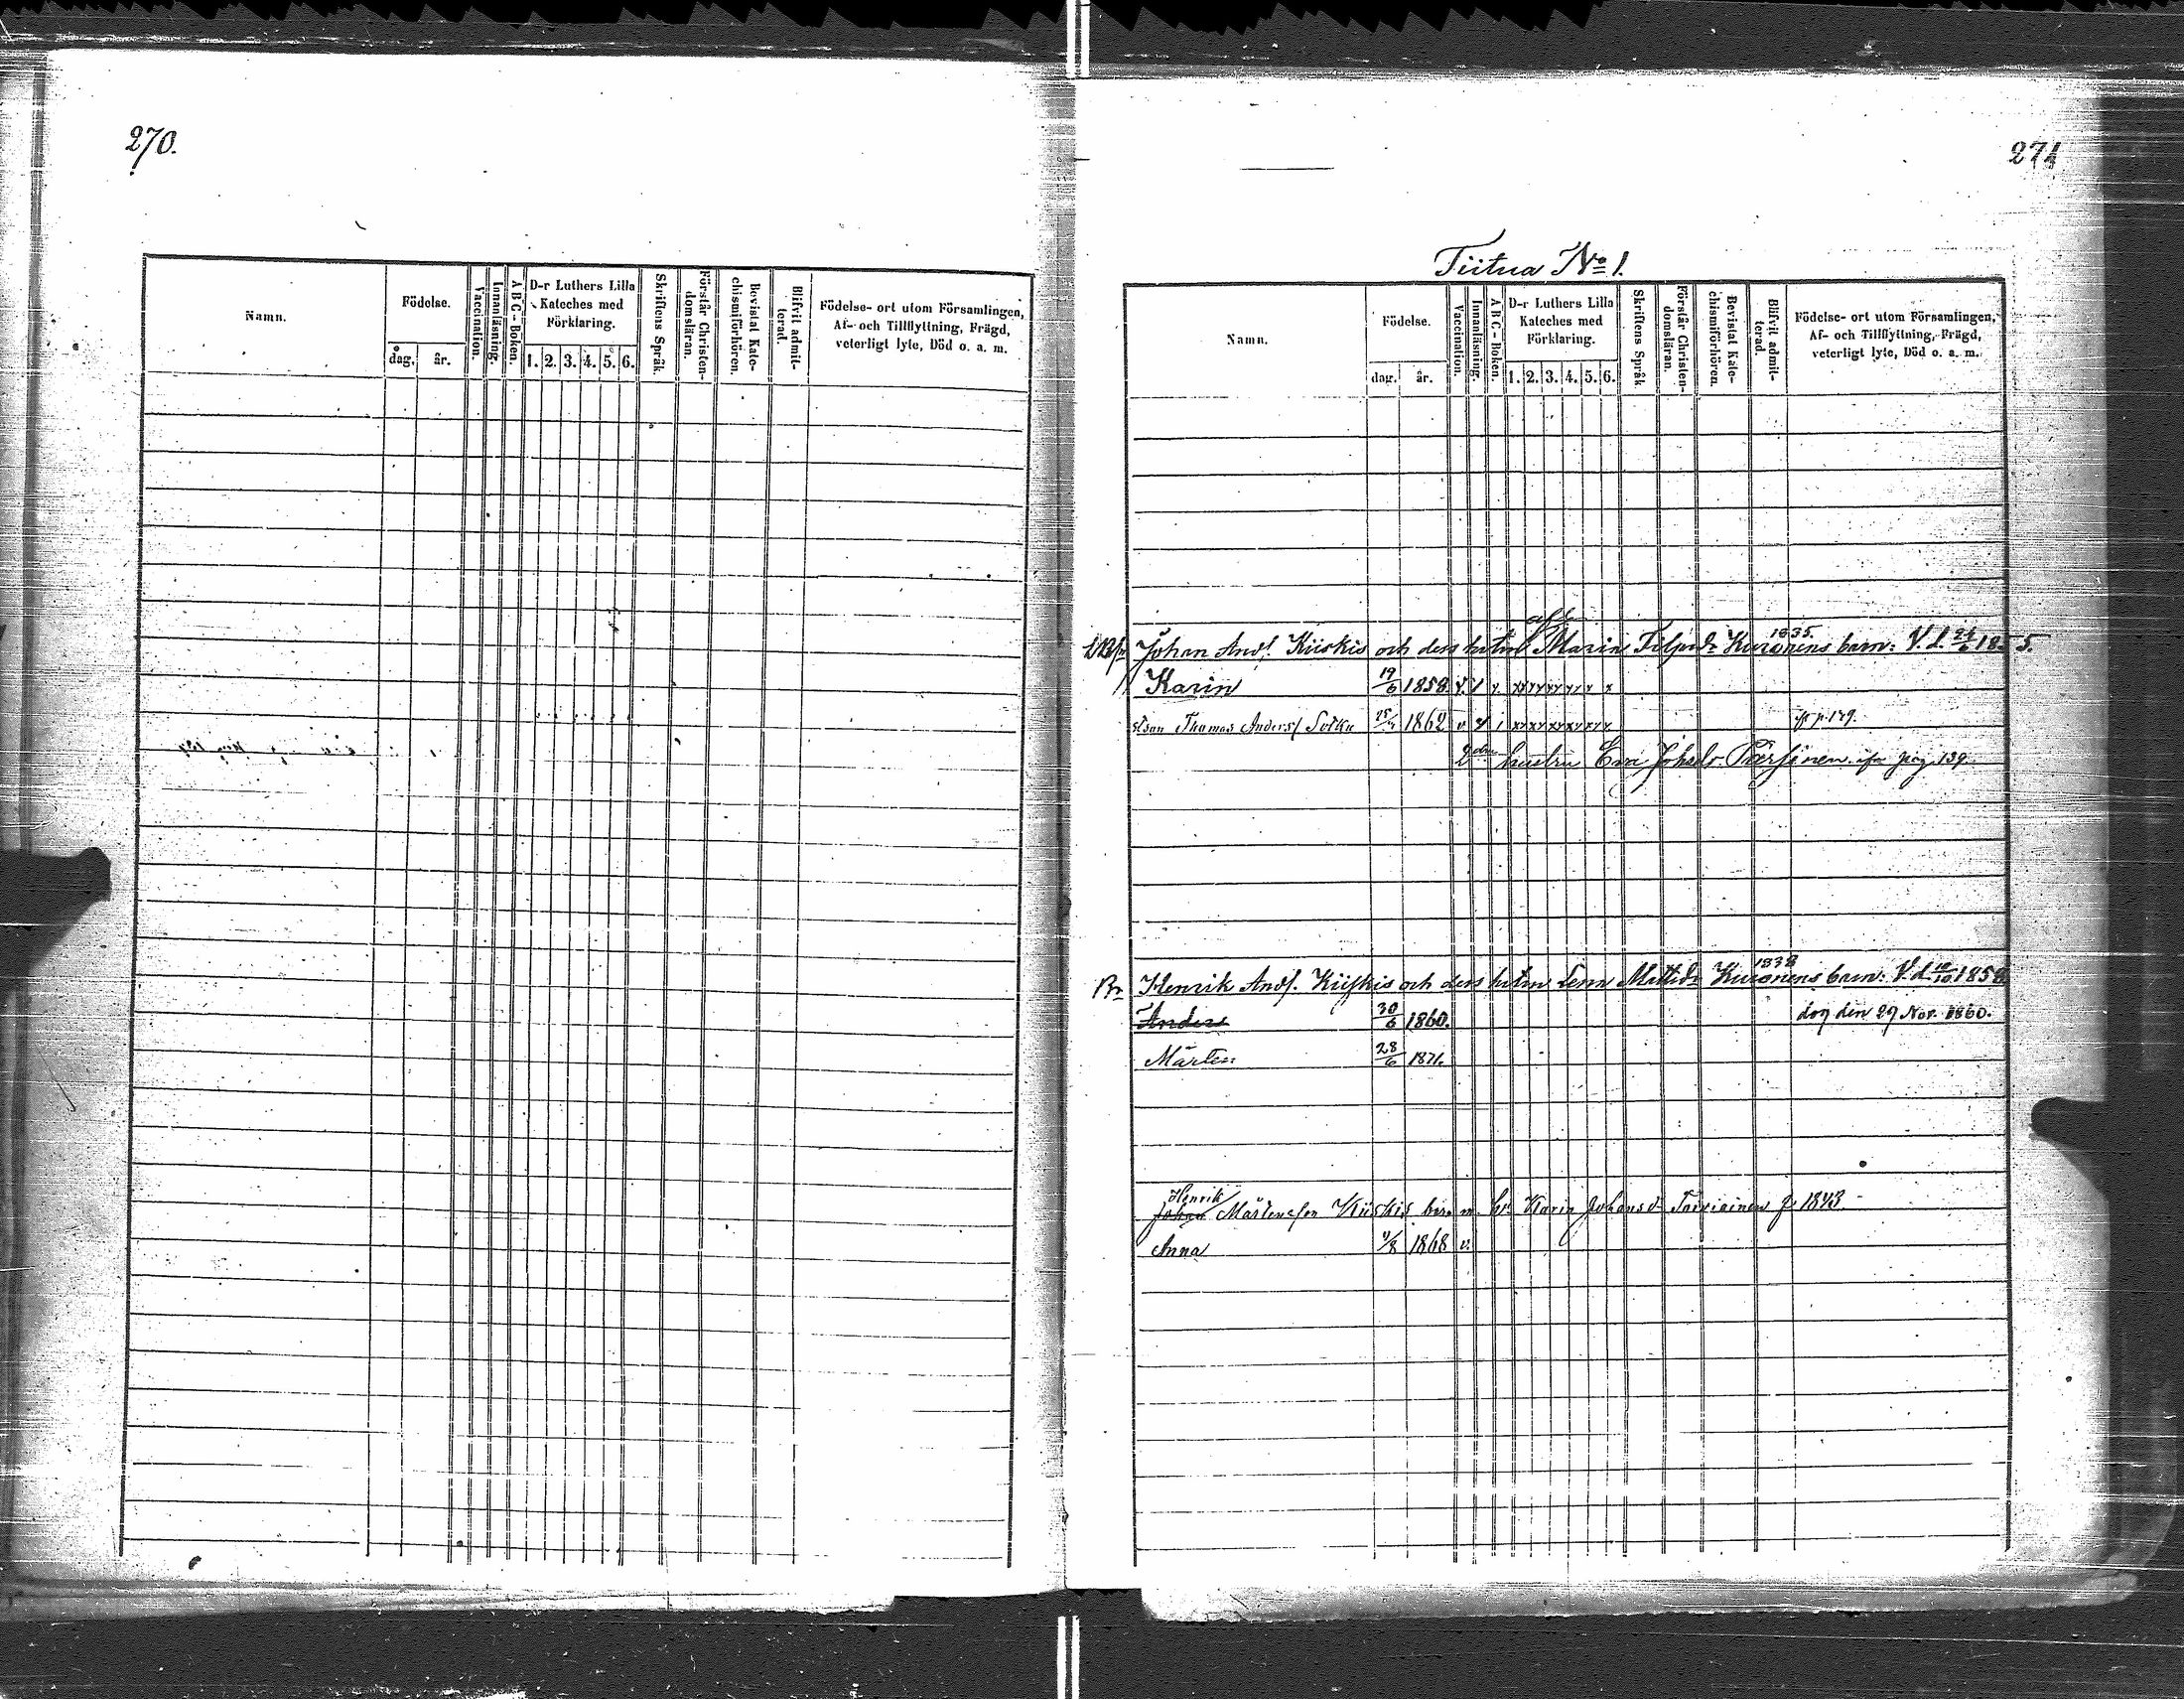 270.
Namn.
Födelse.
dag. år.
Vaccination.
Innanläsning.
A B C - Boken.
D-r Luthers Lilla
Kateches med
Förklaring.
1. 2. 3. 4. 5. 6.
Skriftens Språk.
Förstår Christen-
domsläran.
Bevistat Kate-
chismiförhören.
Blifvit admit-
terad.
Födelse- ort utom Församlingen,
Af- och Tillflyttning, Frägd,
veterligt lyte, Död o. a. m.
271
Tiitua No 1.
Namn.
Födelse.
dag. år.
Vaccination.
Innanläsning.
A B C - Boken.
D-r Luthers Lilla
Kateches med
Förklaring.
1. 2. 3. 4. 5. 6.
Skriftens Språk.
Förstår Christen-
domsläran.
Bevistat Kate-
chismiförhören.
Blifvit admit-
terad.
Födelse- ort utom Församlingen,
Af- och Tillflyttning, Frägd,
veterligt lyte, Död o. a. m.
1835.
Johan Ands. Kiiskis och dess hstru Maria Filpsdr Kuronens barn: V. d. 24/6 1855.
Karin 19/6 1858. v.
Thomas Anders Sotka 1862 v p. 179.
2dra hustru Eva Johsdr Pärsinen ifr pag. 139.
1838
Br Henrik Ands. Kiiskis och dess hstru Lena Mattsdr Kuronens barn: V. d. 1858
Anders 30/6 1860. dog den 29 Nov. 1860.
Mårten 28/6 1871.
Henrik
Johan Mårtensson Kiiskis barn m. h. Karin Johansdr Taivainen f 1843
Anna 1/8 1868 v.